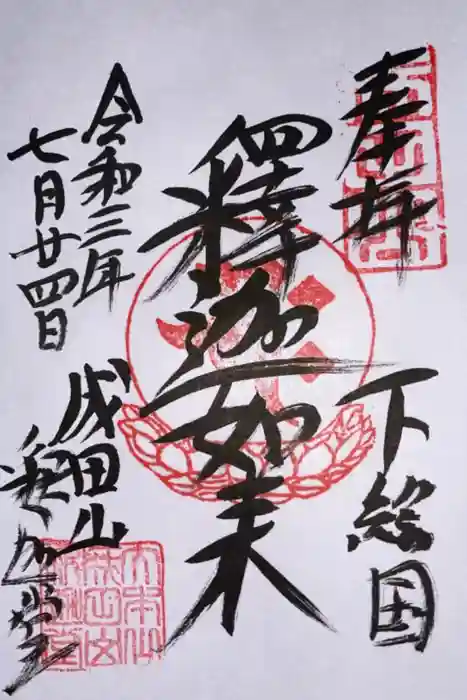 奉拝
下総国
釋迦如来
令和三年
七月廿四日
成田山
釈迦堂